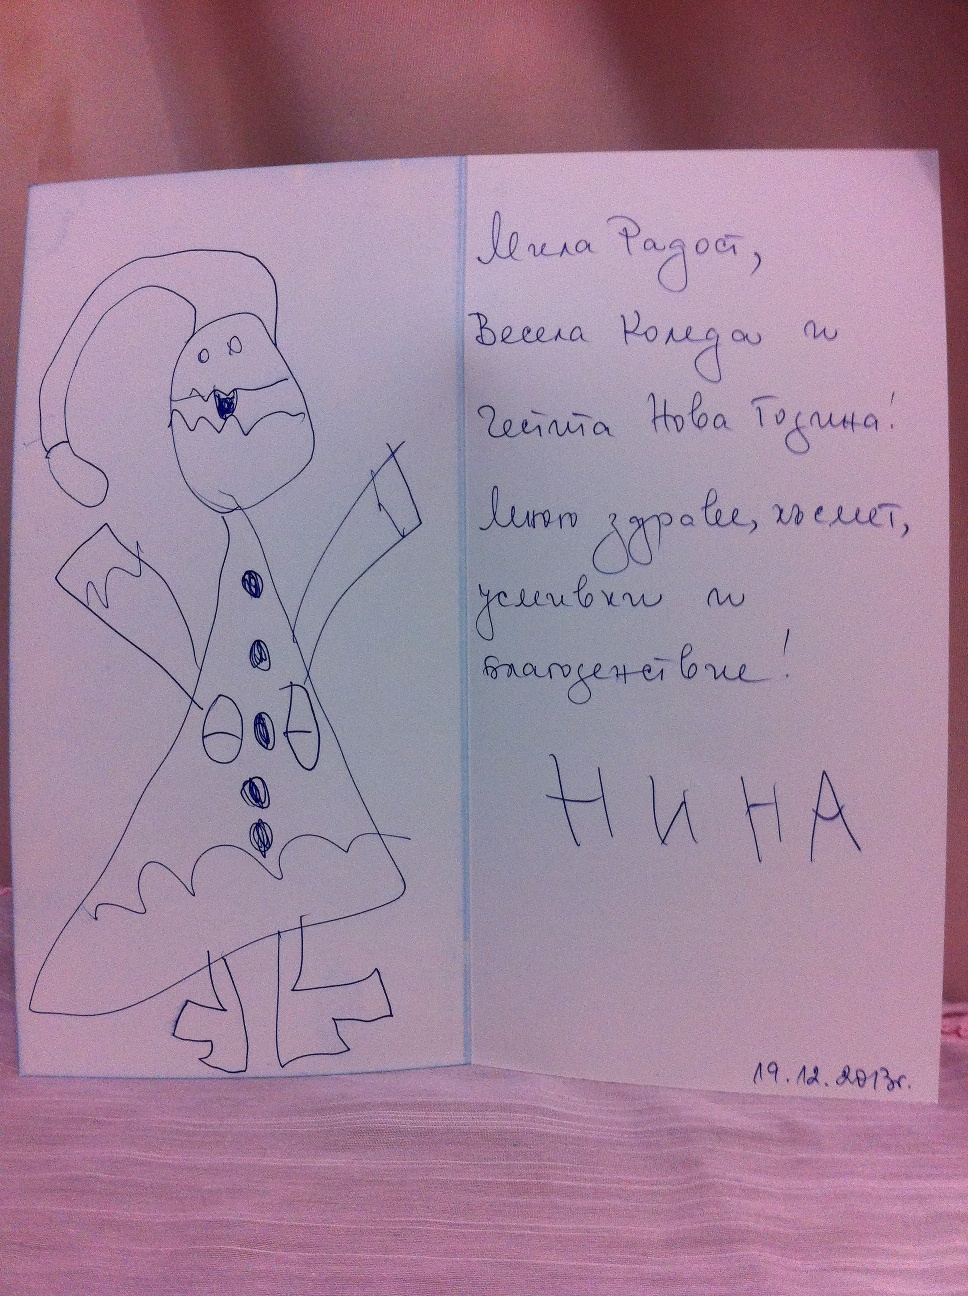 Мила Радост,
Весела Коледа и
Честита Нова Година!
Много здраве, късмет,
усмивки и
благоденствие!
НИНА
19.12.2013г.